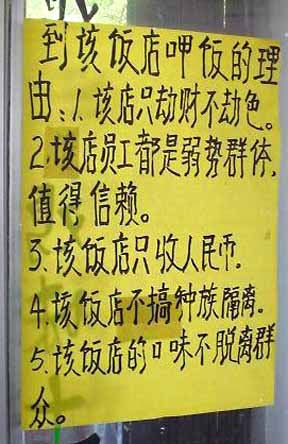 到该饭店呷饭的理
由:1.该店只劫财不劫色。
2.该店员工都是弱势群体,
值得信赖。
3.该饭店只收人民币.
4.该饭店不搞种族隔离。
5.该饭店的口味不脱离群
众。